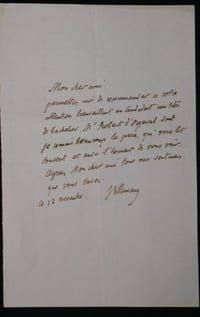 Mon cher ami
permettez moi de recommander à votre
attention bienveillante un candidat au
de bachelier. Mr Robert d' dont
je connais beaucoup le père, qui vous
souvent et aura l'honneur de vous voir.
Agréez Mon cher ami tous mes sentimens
que vous savez.
ce 12 novembre.
Villemain